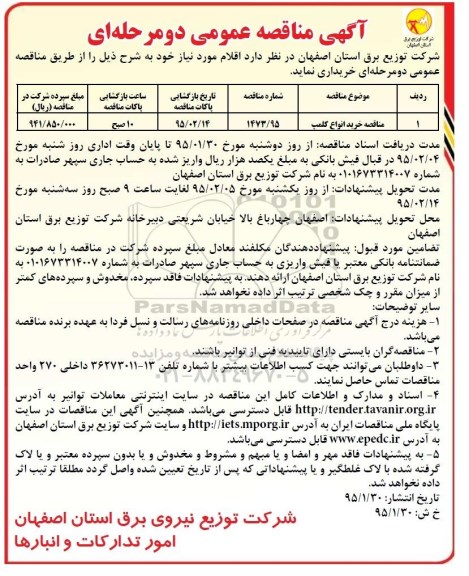 شرکت توزیع برق
استان اصفهان
آگهی مناقصه عمومی دومرحله‌ای
شرکت توزیع برق استان اصفهان در نظر دارد اقلام مورد نیاز خود به شرح ذیل را از طریق مناقصه
عمومی دومرحله‌ای خریداری نماید.
ردیف موضوع مناقصه شماره مناقصه تاریخ بازگشایی پاکات مناقصه ساعت بازگشایی پاکات مناقصه مبلغ سپرده شرکت در مناقصه (ریال)
۱ مناقصه خرید انواع کلمپ ۱۴۷۳/۹۵ ۹۵/۰۲/۱۴ ۱۰ صبح ۹۴۱/۸۵۰/۰۰۰
مدت دریافت اسناد مناقصه: از روز دوشنبه مورخ ۹۵/۰۱/۳۰ تا پایان وقت اداری روز شنبه مورخ
۹۵/۰۲/۰۴ در قبال فیش بانکی به مبلغ یکصد هزار ریال واریز شده به حساب جاری سپهر صادرات به
شماره ۰۱۰۱۶۷۳۳۱۴۰۰۷ به نام شرکت توزیع برق استان اصفهان
مدت تحویل پیشنهادات: از روز یکشنبه مورخ ۹۵/۰۲/۰۵ لغایت ساعت ۹ صبح روز سه‌شنبه مورخ
۹۵/۰۲/۱۴
محل تحویل پیشنهادات: اصفهان چهارباغ بالا خیابان شریعتی دبیرخانه شرکت توزیع برق استان
اصفهان
تضامین مورد قبول: پیشنهاددهندگان مکلفند معادل مبلغ سپرده شرکت در مناقصه را به صورت
ضمانتنامه بانکی معتبر یا فیش واریزی به حساب جاری سپهر صادرات به شماره ۰۱۰۱۶۷۳۳۱۴۰۰۷ به
نام شرکت توزیع برق استان اصفهان ارائه دهند. به پیشنهادات فاقد سپرده، مخدوش و سپرده‌های کمتر
از میزان مقرر و چک شخصی ترتیب اثر داده نخواهد شد.
سایر توضیحات:
۱- هزینه درج آگهی مناقصه در صفحات داخلی روزنامه‌های رسالت و نسل فردا به عهده برنده مناقصه
می‌باشد.
۲- مناقصه‌گران بایستی دارای تاییدیه فنی از توانیر باشند.
۳- داوطلبان می‌توانند جهت کسب اطلاعات بیشتر با شماره تلفن ۱۳-۳۶۲۷۳۰۱۱ داخلی ۲۷۰ واحد
مناقصات تماس حاصل نمایند.
۴- اسناد و مدارک و اطلاعات کامل این مناقصه در سایت اینترنتی معاملات توانیر به آدرس
http://tender.tavanir.org.ir قابل دسترسی می‌باشد. همچنین آگهی این مناقصات در سایت
پایگاه ملی مناقصات ایران به آدرس http://iets.mporg.ir و سایت شرکت توزیع برق استان اصفهان
به آدرس www.epedc.ir قابل دسترسی می‌باشد.
۵- به پیشنهادات فاقد مهر و امضا و یا مبهم و مشروط و مخدوش و یا بدون سپرده معتبر و یا لاک
گرفته شده با لاک غلط‌گیر و یا پیشنهاداتی که پس از تاریخ تعیین شده واصل گردد مطلقا ترتیب اثر
داده نخواهد شد.
تاریخ انتشار: ۹۵/۱/۳۰
خ ش: ۹۵/۱/۳۰
شرکت توزیع نیروی برق استان اصفهان
امور تدارکات و انبارها
ParsNamadData
۰۲۱-۸۸۳۴۹۶۷۰-۵